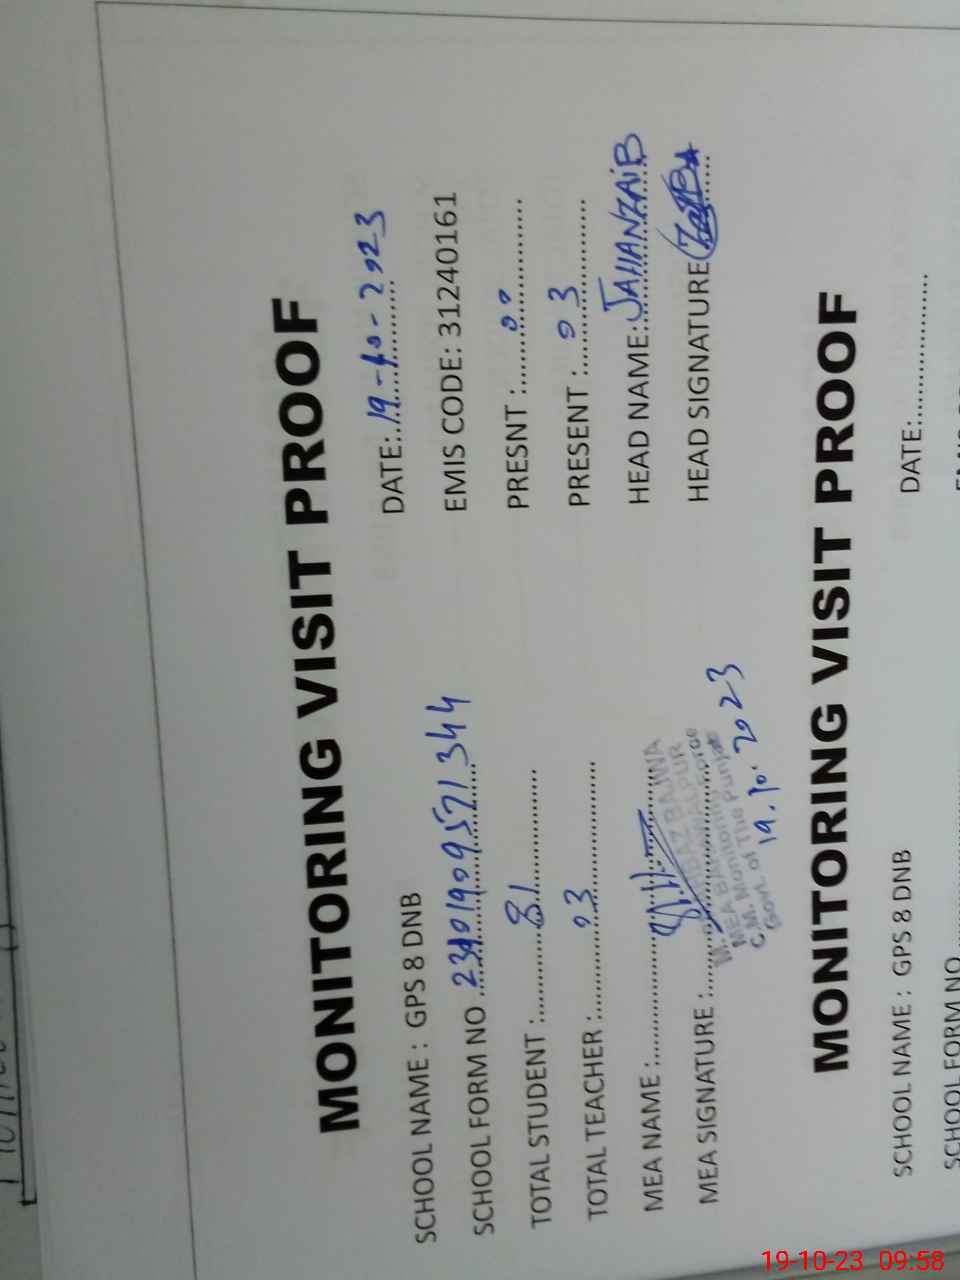 MONITORING VISIT PROOF
DATE:..19-10-2023
SCHOOL NAME : GPS 8 DNB EMIS CODE: 31240161
SCHOOL FORM NO 231901909571344
TOTAL STUDENT :............81............ PRESNT :........00............
TOTAL TEACHER :............03............ PRESENT :......03............
MEA NAME :............ HEAD NAME: JAHANZAIB
MEA SIGNATURE :............ HEAD SIGNATURE
BAJWA
MEA BAHAWALPUR
C.M. Monitoring Force
Govt. of The Punjab
19.10.2023
MONITORING VISIT PROOF
DATE:................
SCHOOL NAME : GPS 8 DNB
SCHOOL FORM NO
19-10-23 09:58